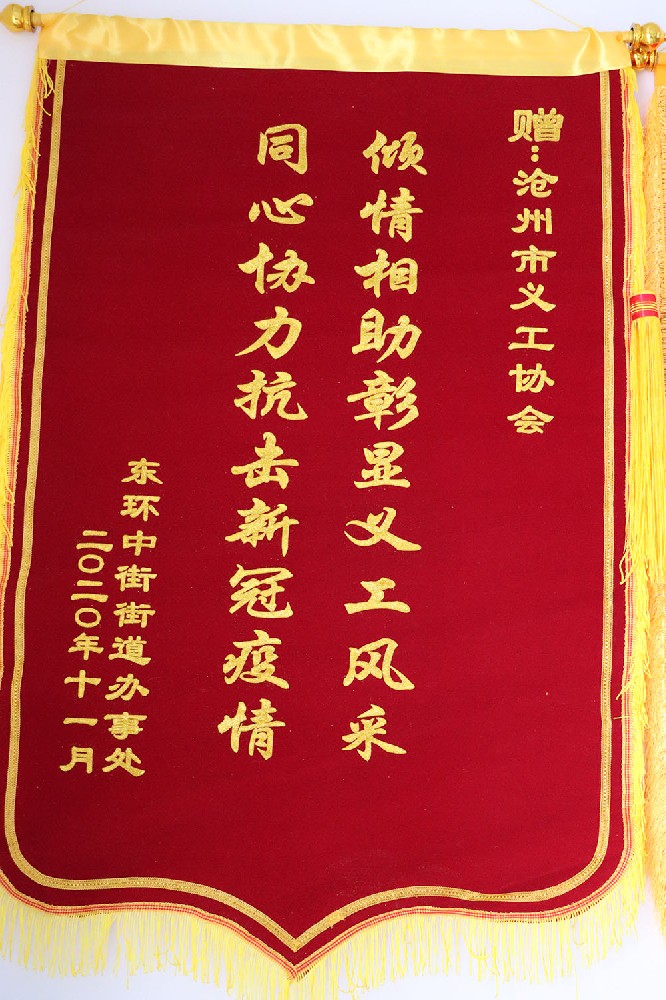 赠:沧州市义工协会
倾情相助彰显义工风采
同心协力抗击新冠疫情
东环中街街道办事处
二〇二〇年十一月